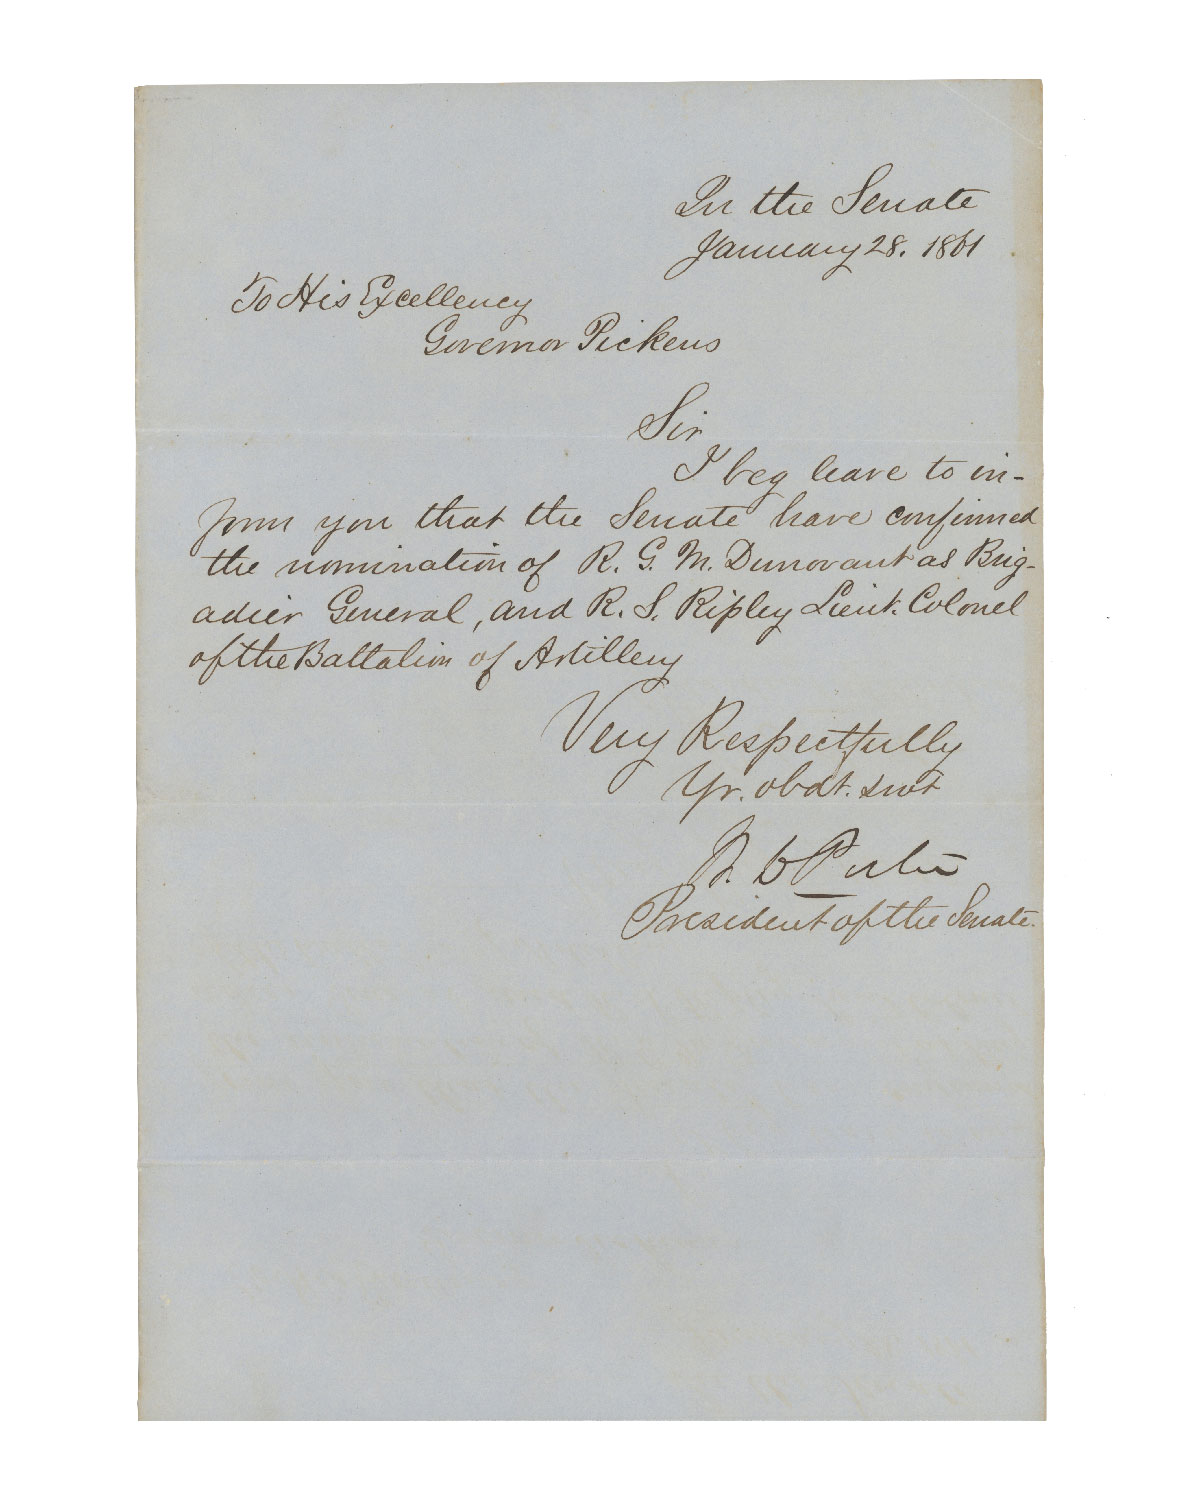 In the Senate
January 28. 1861
To His Excellency
Governor Pickens
Sir
I beg leave to in-
form you that the Senate have confirmed
the nomination of R. G. M. Dunovant as Brig-
adier General, and R. S. Ripley Lieut. Colonel
of the Battalion of Artillery
Very Respectfully
Yr. obdt. svt
W. D. Porter
President of the Senate.